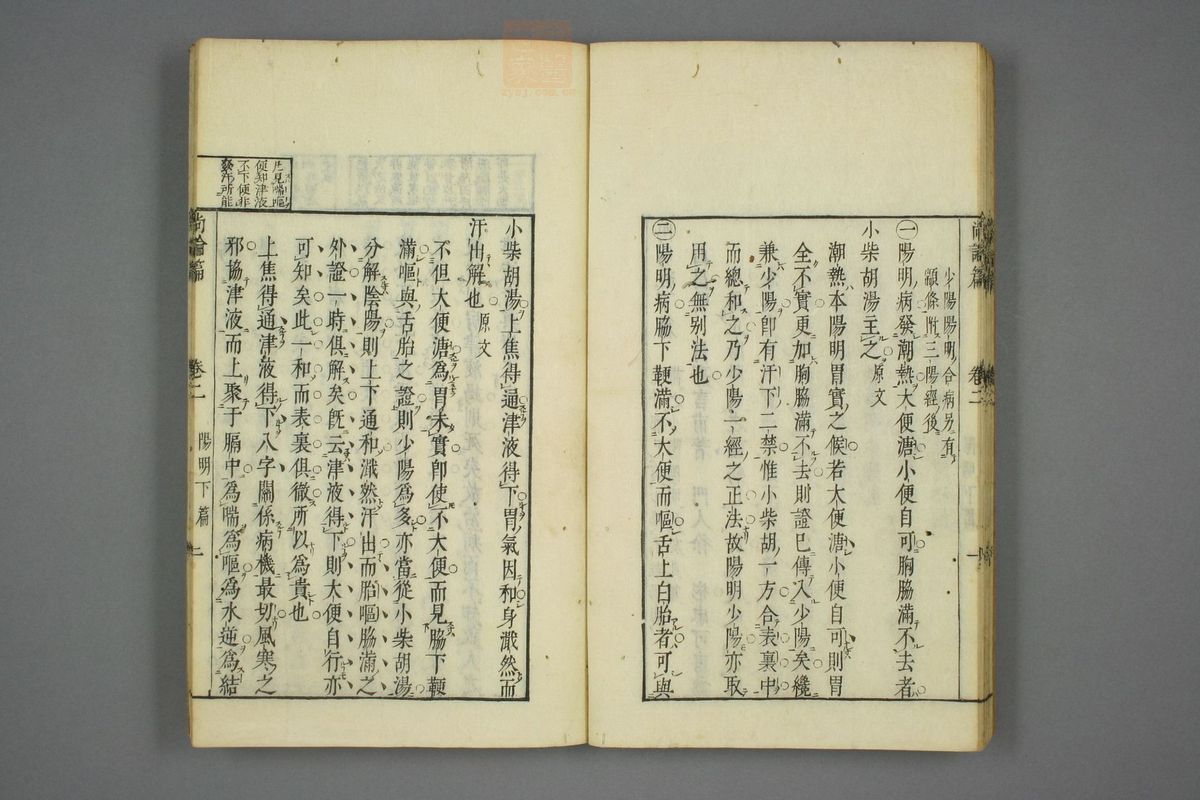 少陽陽明合病另有
顓條附三陽經後
㊀陽明病發潮熱大便溏小便自可胸脇滿不去者
小柴胡湯主之原文
潮熱本陽明胃實之候若大便溏小便自可則胃
全不實更加胸脇滿不去則證已傳入少陽矣纔
兼少陽卽有汗下二禁惟小柴胡一方合表裏中
而總和之乃少陽一經之正法故陽明少陽亦取
用之無别法也
㊁陽明病脇下鞕滿不大便而嘔舌上白胎者可與
尚論篇 卷二 一
小柴胡湯上焦得通津液得下胃氣因和身濈然而
汗出解也原文
不但大便溏爲胃未實卽使不大便而見脇下鞕
滿嘔與舌胎之證則少陽爲多亦當從小柴胡湯
分解陰陽則上下通和濈然汗出而胎嘔脇滿之
外證一時俱解矣旣云津液得下則大便自行亦
可知矣此一和而表裏俱徹所以爲貴也
上焦得通津液得下八字關係病機最切風寒之
邪協津液而上聚于膈中爲喘爲嘔爲水逆爲結
凡見喘嘔
便知津液
不下便非
發汗所能
尚論篇 卷二 陽明下篇 二
zysj.com.cn